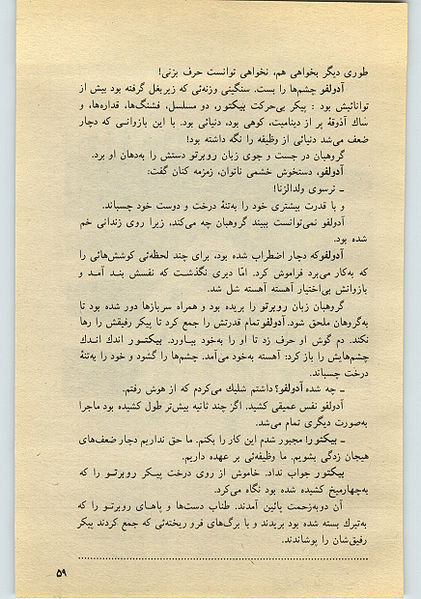 طوری دیگر بخواهی هم، نخواهی توانست حرف بزنی!
آدولفو چشم‌ها را بست. سنگینی وزنه‌ئی که زیربغل گرفته بود بیش از
توانائیش بود : پیکر بی‌حرکت بیکتور، دو مسلسل، فشنگ‌ها، قداره‌ها، و
ساك آذوقهٔ پر از دینامیت، کوهی بود، دنیائی بود. با این بازوانـی که دچار
ضعف می‌شد دنیائی از وظیفه را نگه داشته بود!
گروهبان در جست و جوی زبان روبرتو دستش را به‌دهان او برد.
آدولفو، دستخوش خشمی ناتوان، زمزمه کنان گفت:
ـ نرسوی ولدالزنا!
و با قدرت بیشتری خود را به‌تنهٔ درخت و دوست خود چسباند.
آدولفو نمی‌توانست ببیند گروهبان چه می‌کند، زیرا روی زندانی خم
شده بود.
آدولفوکه دچار اضطراب شده بود، برای چند لحظه‌ئی کوشش‌هائی را
که به‌کار می‌برد فراموش کرد. امّا دیری نگذشـت که نفسش بنـد آمـد و
بازوانش بی‌اختیار آهسته آهسته شل شد.
گروهبان زبان روبرتو را بریده بود و همراه سربازها دور شده بود تا
به‌گروهان ملحق شود. آدولفوتمام قدرتش را جمع کرد تا پیکر رفیقش را رها
نکند. دم گوش او حرف زد تا او را به‌خود بیـاورد. بیـکتـور انـدك انـدك
چشم‌هایش را باز کرد: آهسته به‌خود می‌آمد. چشم‌ها را گشود و خود را به‌تنهٔ
درخت چسباند.
ـ چه شده آدولفو؟ داشتم شلیك می‌کردم که از هوش رفتم.
آدولفو نفس عمیقی کشید. اگر چند ثانیه بیش‌تر طول کشیده بود ماجرا
به‌صورت دیگری تمام می‌شد.
ـ بیکتور! مجبور شدم این کار را بکنم. ما حق نداریم دچار ضعف‌های
هیجان زدگی بشویم. ما وظیفه‌ئی بر عهده داریم.
بیکتور جواب نداد. خاموش از روی درخت پیـکر روبرتــو را که
به‌چهارمیخ کشیده شده بود نگاه می‌کرد.
آن دوبه‌زحمت پائین آمدند. طناب دست‌ها و پاهـای روبرتــو را که
به‌تیرك بسته شده بود بریدند و با برگ‌های فرو ریخته‌ئی که جمع کردند پیکر
رفیق‌شان را پوشاندند.
۵۹